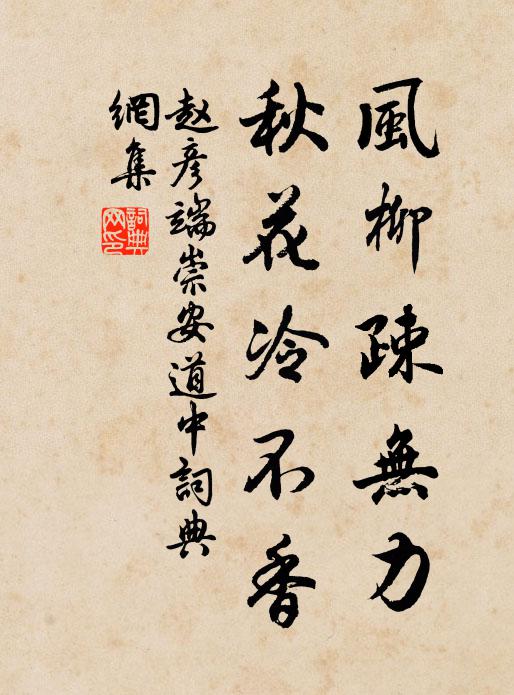 風柳疎無力
秋花冷不香
赵彦端崇安道中詞典
網集
詞典
网印